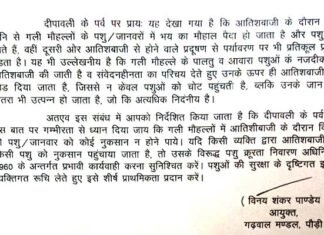 दीपावली के पर्व पर प्रायः यह देखा गया है कि आतिशबाजी के दौरान
नि से गली मौहल्लों के पशु/जानवरों में भय का माहौल पैदा हो जाता है और पशु
ते हैं, वहीं दूसरी ओर आतिशबाजी से होने वाले प्रदूषण से पर्यावरण पर भी प्रतिकूल प्र
ड़ता है। यह भी उल्लेखनीय है कि गली मोहल्ले के पालतु व आवारा पशुओं के नजदीक
आतिशबाजी की जाती है व संवेदनहीनता का परिचय देते हुए उनके ऊपर ही आतिशबाजी
ड दिया जाता है, जिससे न केवल पशुओं को चोट पहुंचती है, ब्लकि उनके जान
तरा भी उत्पन्न हो जाता है, जो कि अत्यधिक निंदनीय है।
अतएव इस संबंध में आपको निर्देशित किया जाता है कि दीपावली के पर्व
स बात पर गम्भीरता से ध्यान दिया जाय कि गली मौहल्लों में आतिशीबाजी के दौरान कि
ी पशु/जानवर को कोई नुकसान न होने पाये। यदि किसी व्यक्ति द्वारा आतिशबाजी
किसी पशु को नुकसान पहुंचाया जाता है, तो उसके विरूद्ध पशु क्रूरता निवारण अधिनि
960 के अन्तर्गत प्रभावी कार्यवाही करना सुनिश्चित करें। पशुओं की सुरक्षा के दृष्टिगत इ
यक्तिगत रूचि लेते हुए इसे शीर्ष प्राथमिकता प्रदान करें।
(विनय शंकर पाण्डेय
आयुक्त,
गढ़वाल मण्डल, पौड़ी